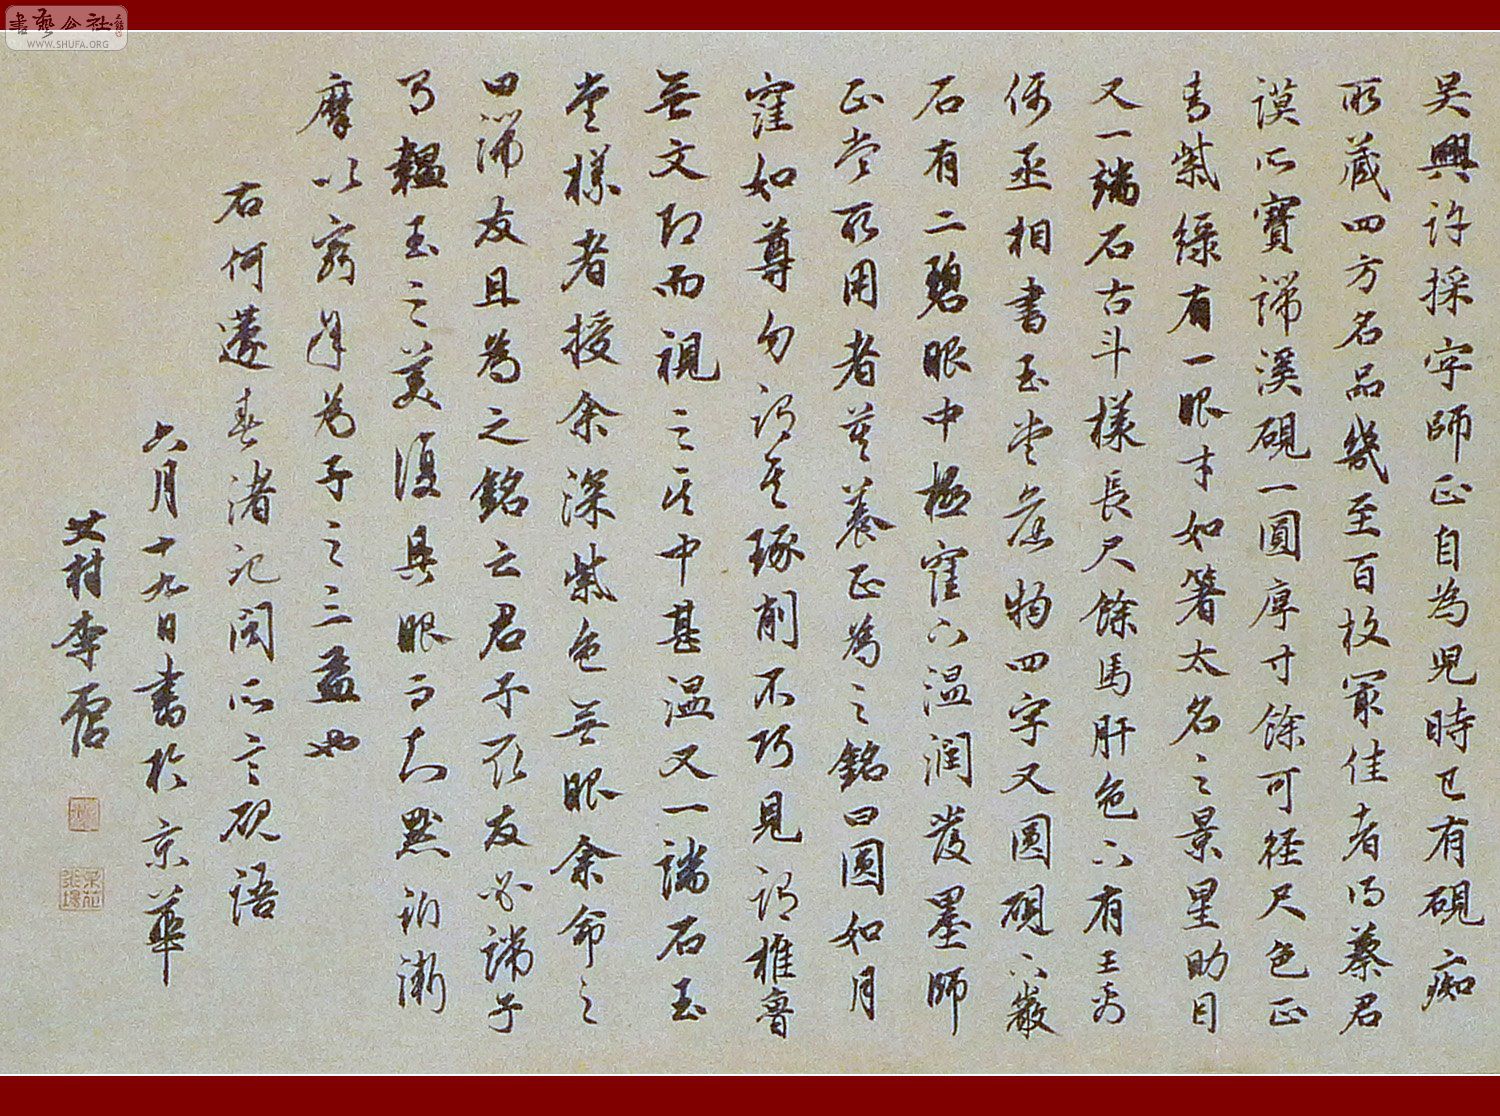 書藝公社
WWW.SHUFA.ORG
吴興許採字師正自為児時已有硯痴
所蔵四方名品幾至百枚冣佳者得蔡君
謨所寶端溪硯一圓厚寸餘可徑尺色正
青紫緑有一眼才如箸太名之景星助月
又一端石古斗樣長尺餘馬肝色下有王禹
偁丞相書玉堂舊物四字又圓硯下巖
石有二碧眼中極窪下温潤發墨師
正常所用者莫養正為之銘曰圓如月
窪如尊勿謂其琢削不巧見謂椎魯
無文即而視之其中甚温又一端石玉
堂樣者授余深紫色無眼余命之
曰端友且為之銘云君子取友必端子
乃韞玉之美復具眼而知黙訥漸
摩以窮年為予之三益也
右何薳春渚記聞所言硯語
六月十九日書於京華
艾村李